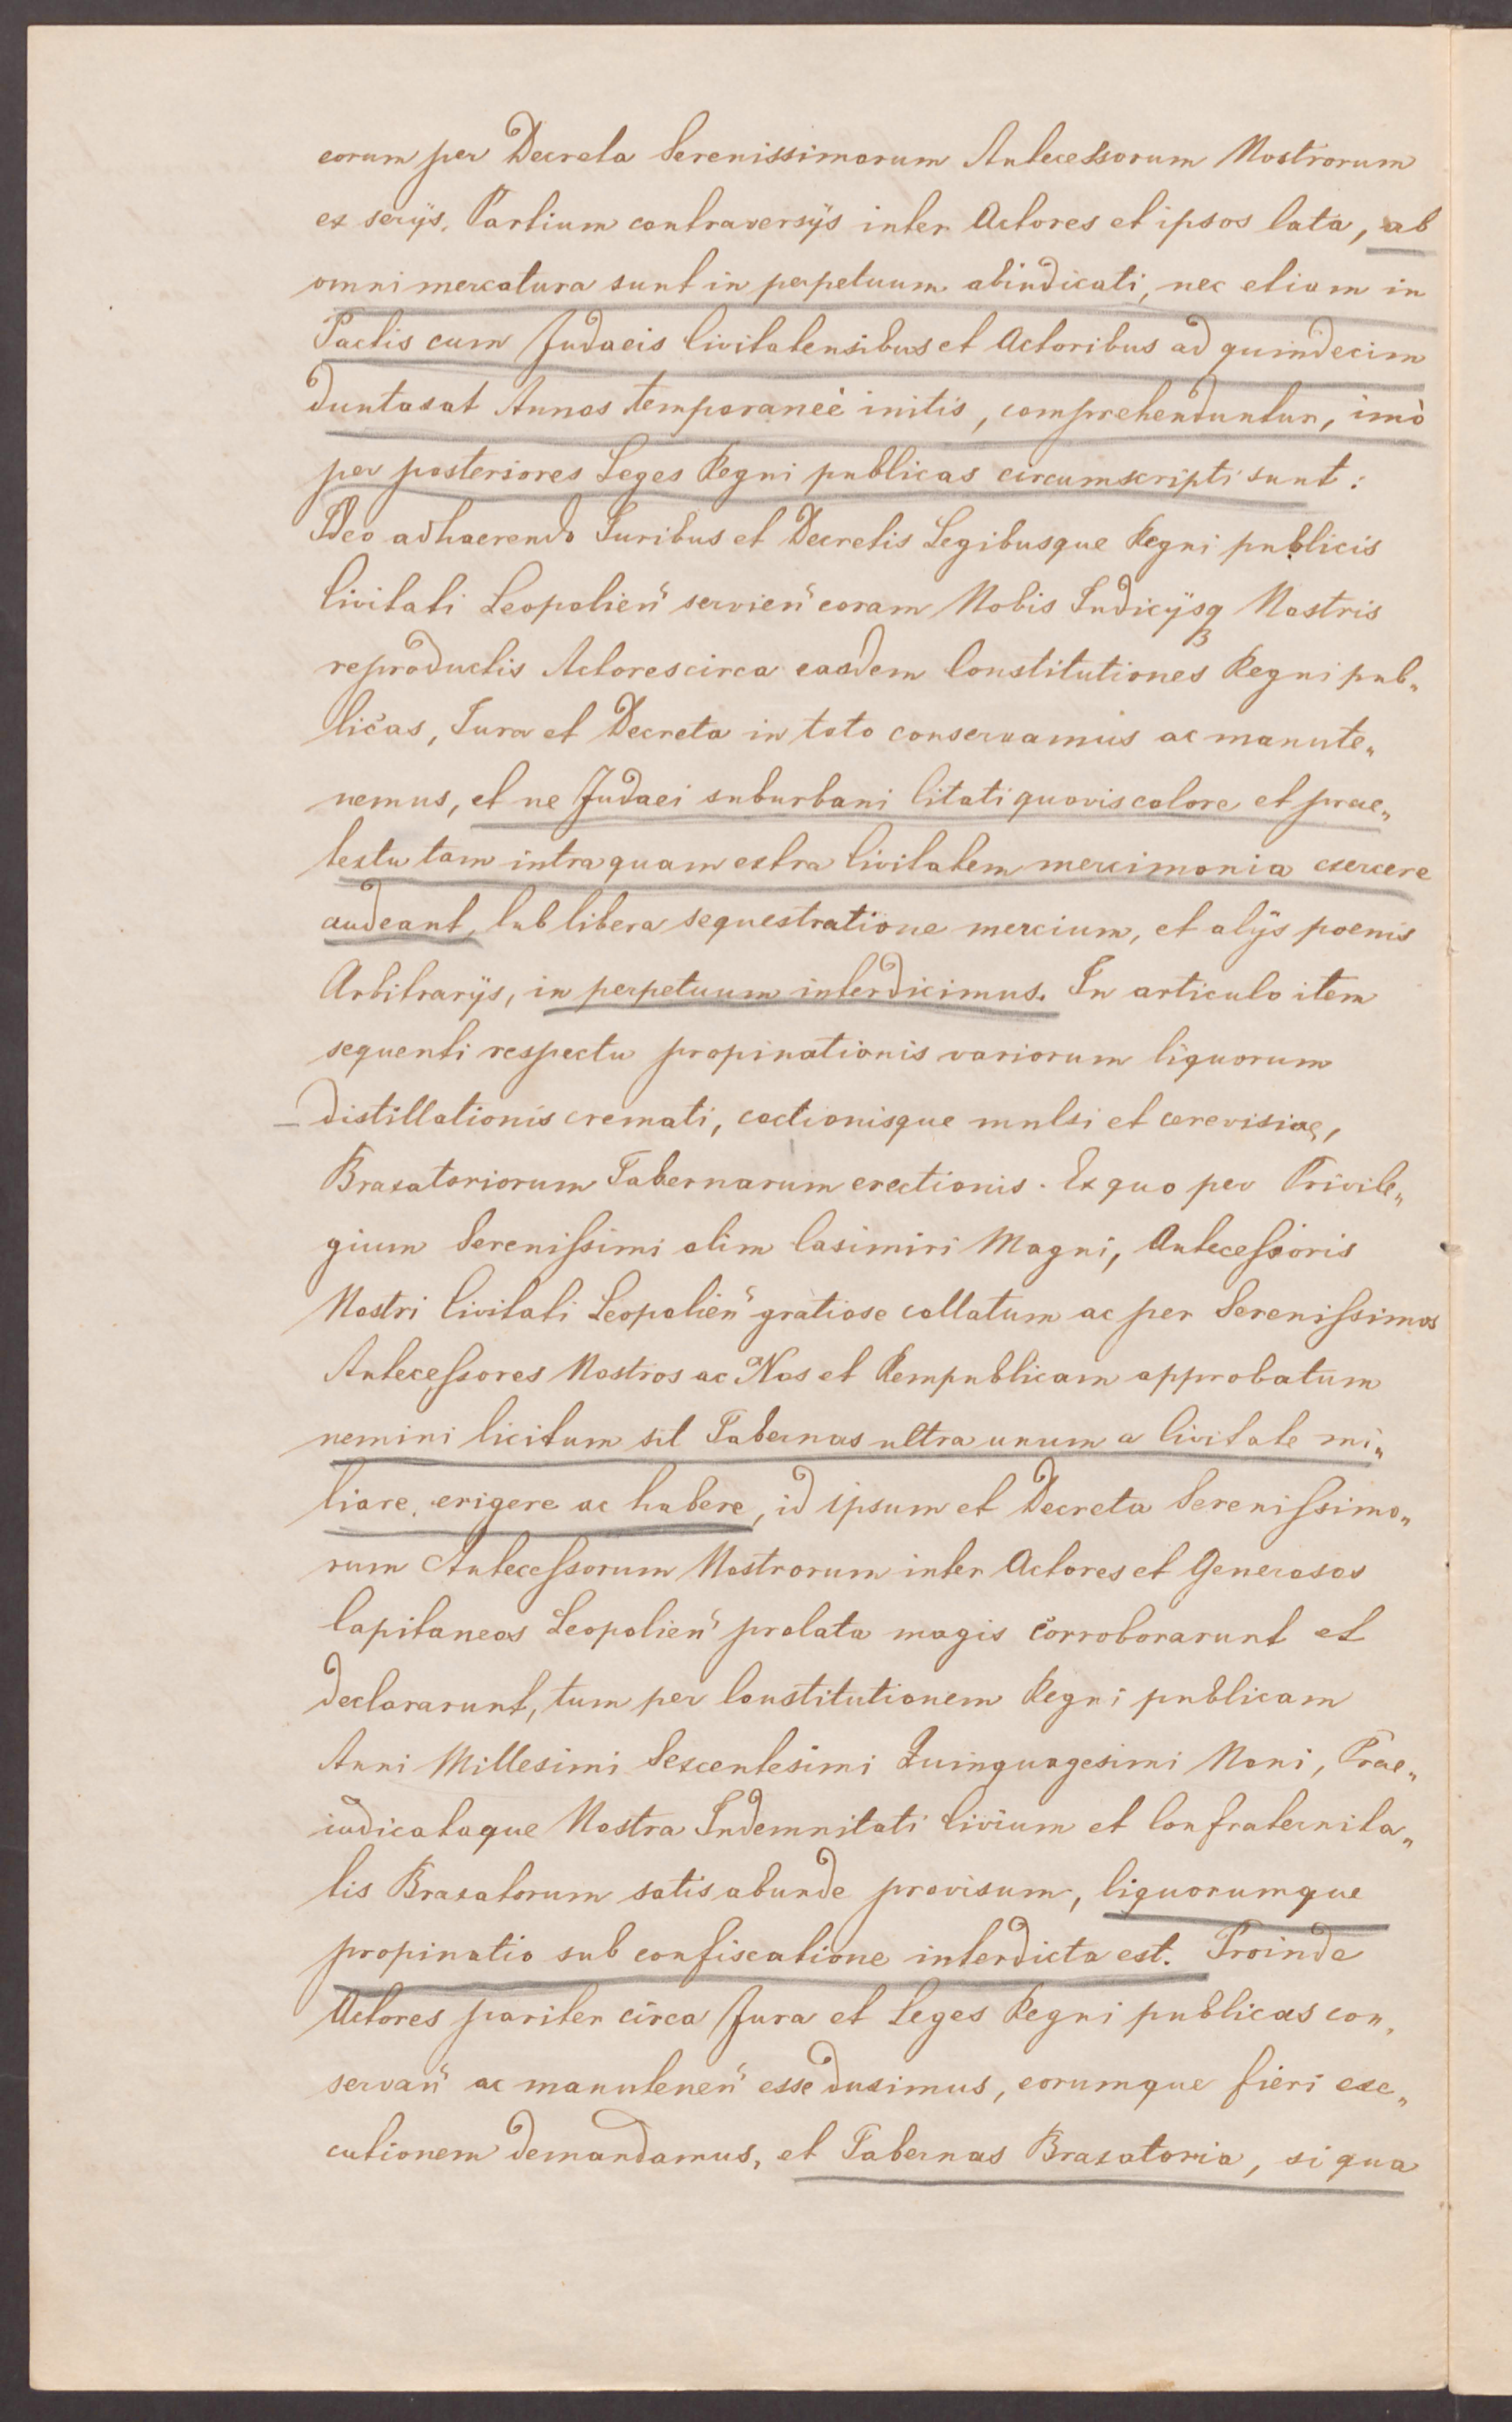 eorum per Decreta Serenissimorum Antecessorum Nostrorum
ex serijs. Partium contraversijs inter Actores et ipsos lata, ab
omni mercatura sunt in perpetuum abiudicati, nec etiam in
Pactis cum Judaeis Civitatensibus et Actoribus ad quindecim
duntaxat Annos temporaneè initis, comprehenduntur, imò
per posteriores Leges Regni publicas circumscripti sunt:
Ideo adhaerendo Iuribus et Decretis Legibusque Regni publicis
Civitati Leopolien̄ servien̄ coram Nobis Iudicijsq Nostris
reproductis Actores circa easdem Constitutiones Regni pub„
licas, Iura et Decreta in toto conservamus ac manute„
nemus, et ne Judaei suburbani Citati quovis colore et prae„
textu tam intra quam extra Civitatem mercimonia exercere
audeant, sub libera sequestratione mercium, et alijs poenis
Arbitrarijs, in perpetuum interdicimus. In articulo item
sequenti respectu propinationis variorum liquorum
distillationis cremati, coctionisque mulsi et cerevisiae,
Braxatoriorum Tabernarum erectionis. Ex quo per Privile„
gium Serenissimi olim Casimiri Magni, Antecessoris
Nostri Civitati Leopolien̄ gratiose collatum ac per Serenissimos
Antecessores Nostros ac Nos et Rempublicam approbatum
nemini licitum sit Tabernas ultra unum a Civitate mi„
liare erigere ac habere, id ipsum et Decreta Serenissimo„
rum Antecessorum Nostrorum inter Actores et Generosos
Capitaneos Leopolien̄ prolata magis corroborarunt et
declararunt, tum per Constitutionem Regni publicam
Anni Millesimi Sexcentesimi Quinquagesimi Noni, Prae„
iudicataque Nostra Indemnitati Civium et Confraternita„
tis Braxatorum satis abunde provisum, liquorumque
propinatio sub confiscatione interdicta est. Proinde
Actores pariter circa Jura et Leges Regni publicas con„
servan̄ ac manutenen̄ esse duximus, eorumque fieri exe„
cutionem demandamus, et Tabernas Braxatoria, si qua